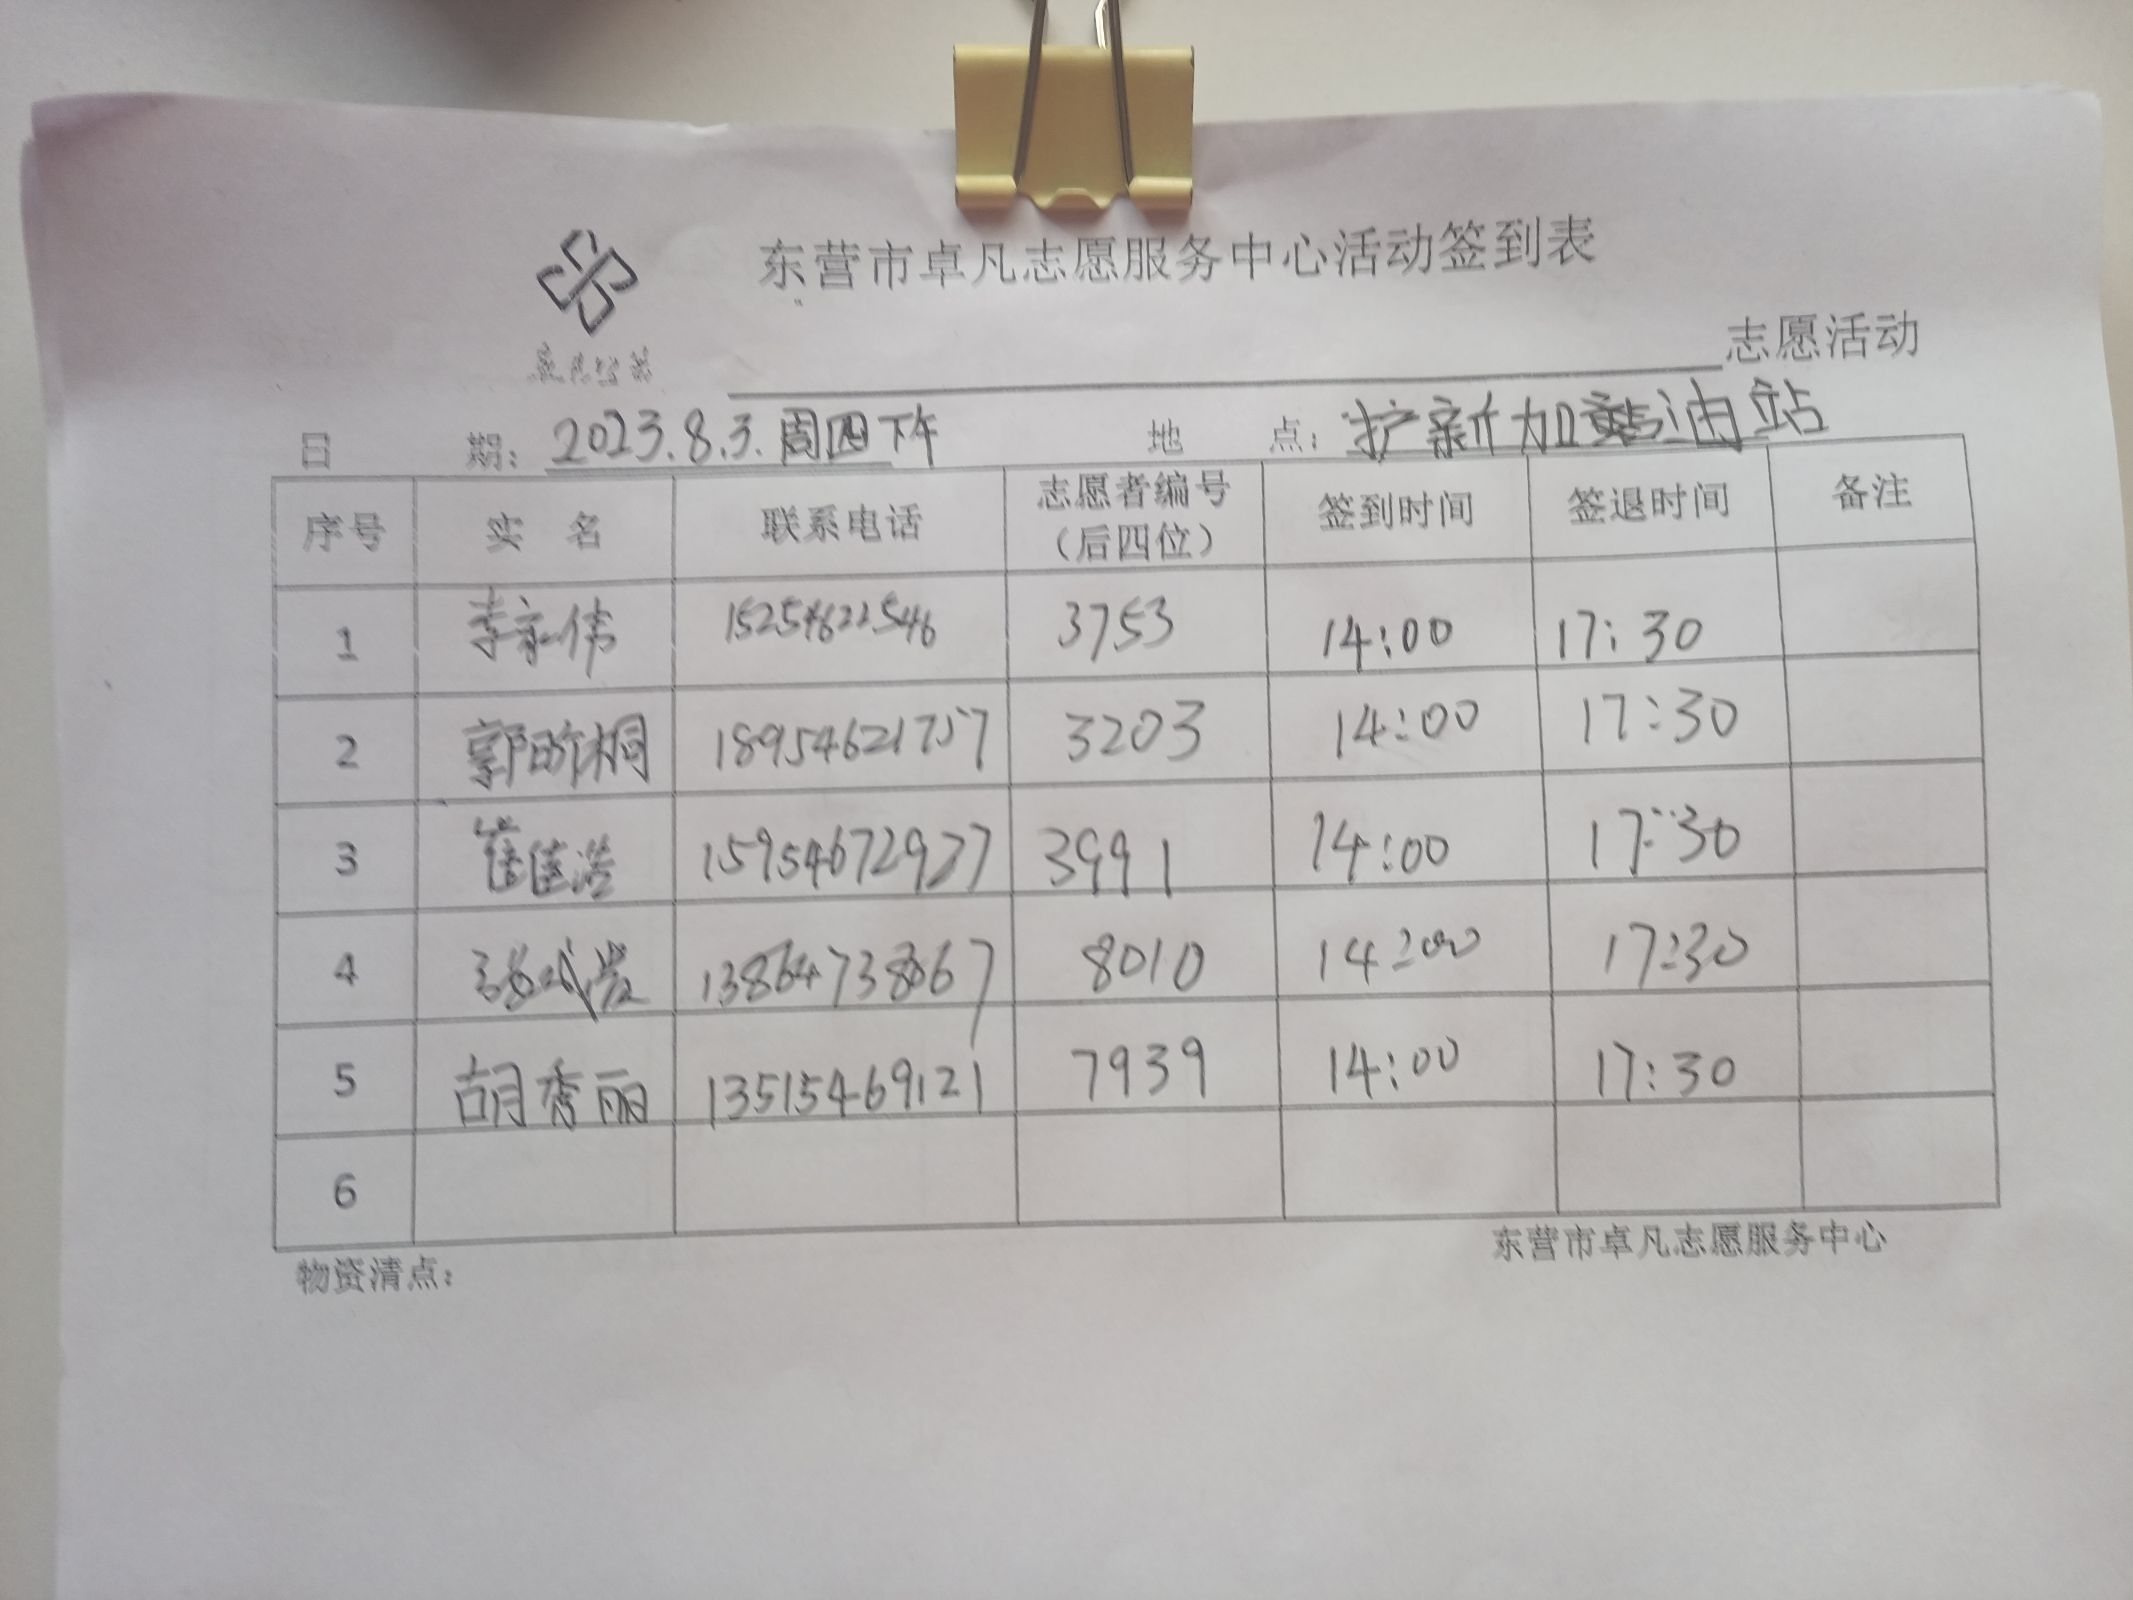 东营市卓凡志愿服务中心活动签到表
志愿活动
日 期: 2023.8.3.周四下午 地 点: 护新加油站
序号 实 名 联系电话 志愿者编号(后四位) 签到时间 签退时间 备注
1 李永伟 15254622546 3753 14:00 17:30
2 郭昨桐 18954621757 3203 14:00 17:30
3 崔佳浩 15954672927 3991 14:00 17:30
4 13864738667 8010 14:00 17:30
5 胡秀丽 13515469121 7939 14:00 17:30
6
物资清点: 东营市卓凡志愿服务中心